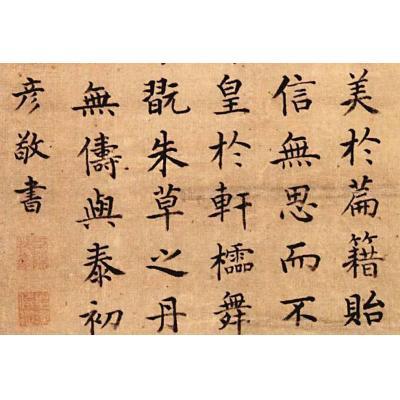 美於篇籍貽
信無思而不
皇於軒櫺舞
翫朱草之丹
無儔與泰初
彥敬書